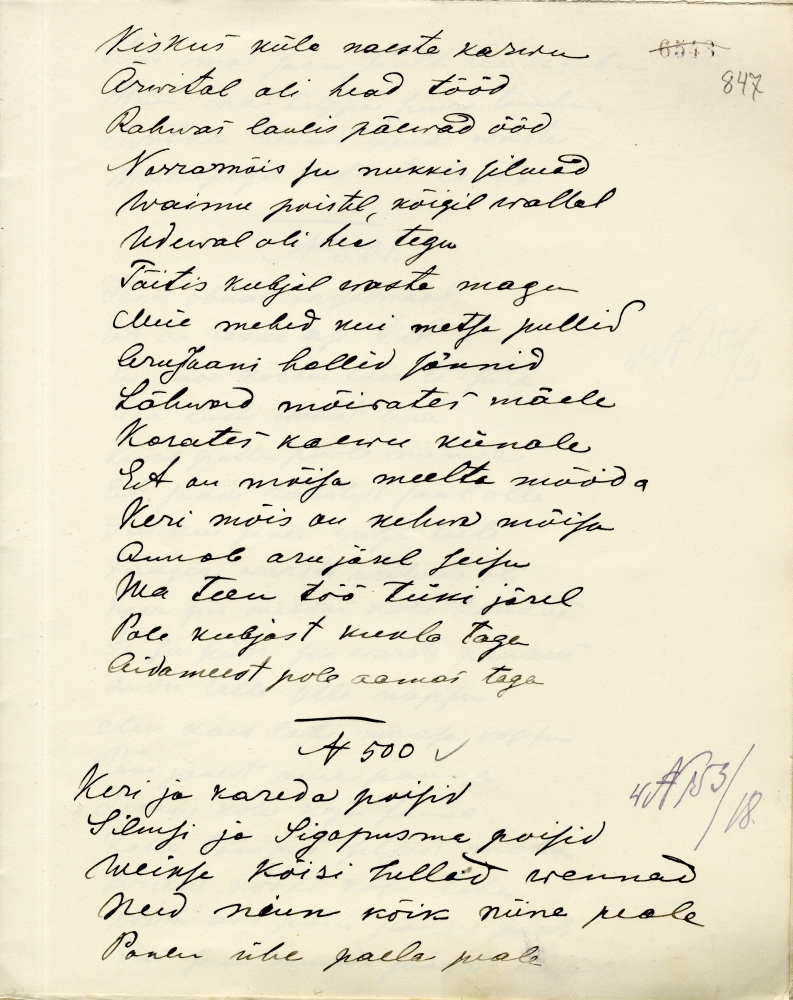 6543
847
Kiskus küla naeste karwu
Ärwital oli head tööd
Rahwas laulis päewad ööd
Norramõis su nukkis silmad
Waimu poistel, kõigil wallal
Udewal oli hea tegu
Täitis kubjal waste magu
Meie mehed kui metsa pullid
Arujaani hallid jõnnid
Lähwad möirates mäele
Karates kaewu künale
Et on mõisa meelta mööda
Keri mõis on kehwa mõisa
Annab aru järel seisu
Ma teen töö tüki järel
Pole kubjast kukla taga
Aidameest pole aamas taga
N 500
Keri ja kareda poisid
Silmsi ja Sigapusma poisid
Weikse Kõisi hellad wennad
Need neiun kõik niine peale
Panen ühe paela peale
N 153/18.